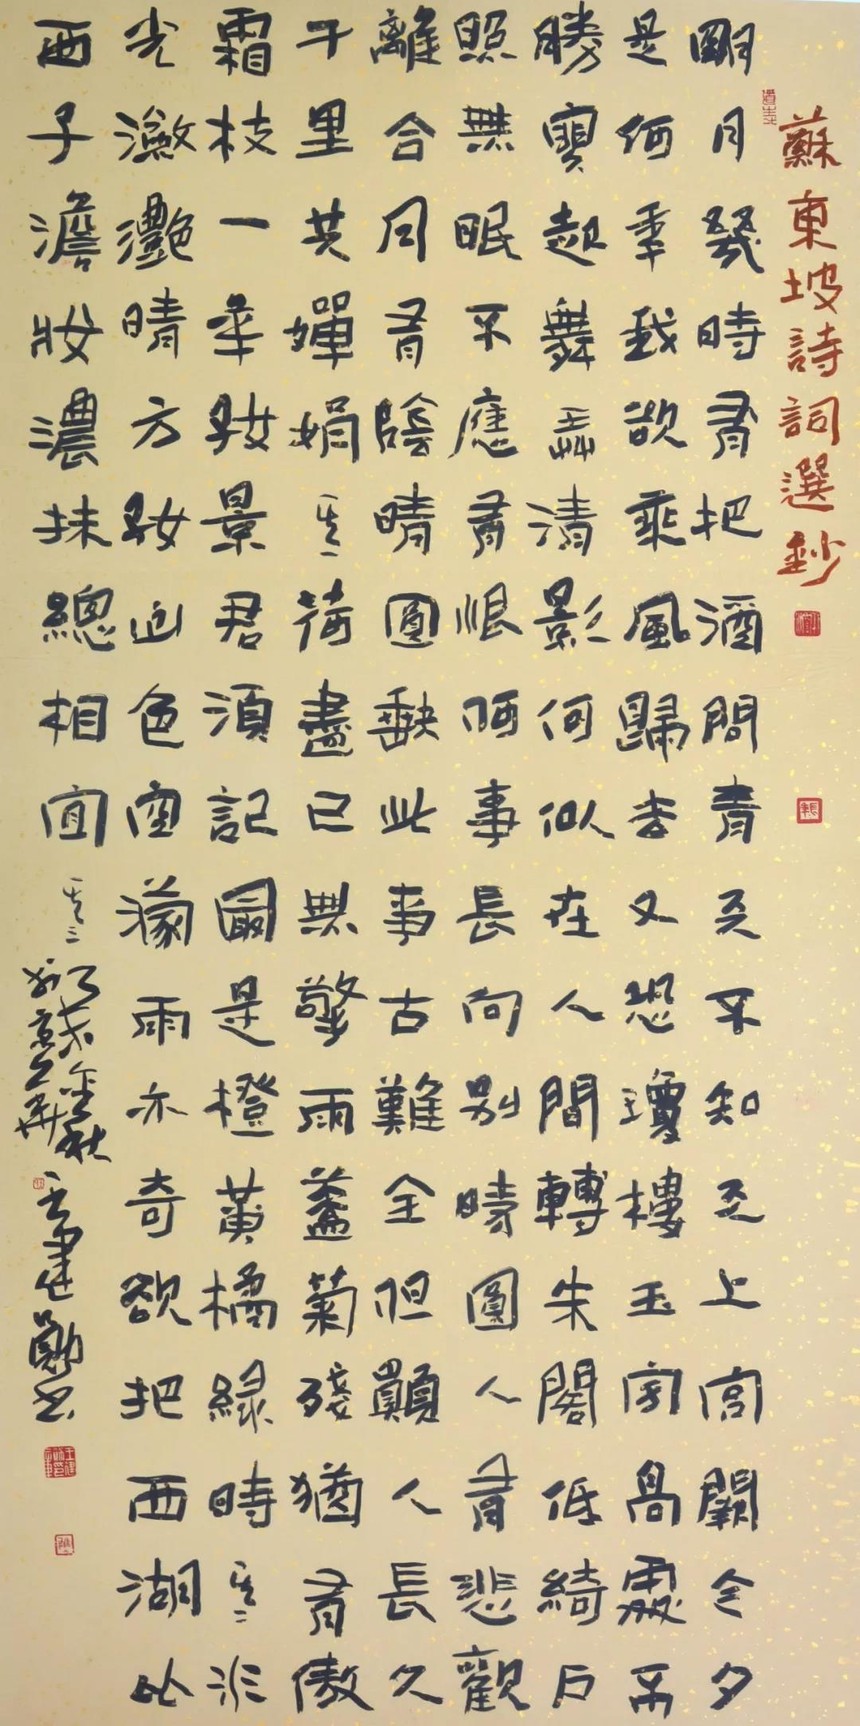 蘇東坡詩詞選鈔
朙月幾時有把酒問青天不知天上宮闕今夕
是何年我欲乘風歸去又恐瓊樓玉宇高處不
勝寒起舞弄清影何似在人間轉朱閣低綺戶
照無眠不應有恨何事長向別時圓人有悲觀
離合月有陰晴圓缺此事古難全但願人長久
千里共嬋娟其一荷盡已無擎雨蓋菊殘猶有傲
霜枝一年好景君須記最是橙黃橘綠時其二水
光瀲灩晴方好山色空濛雨亦奇欲把西湖比
西子澹妝濃抹總相宜其三
金秋
於京華
王建勛書